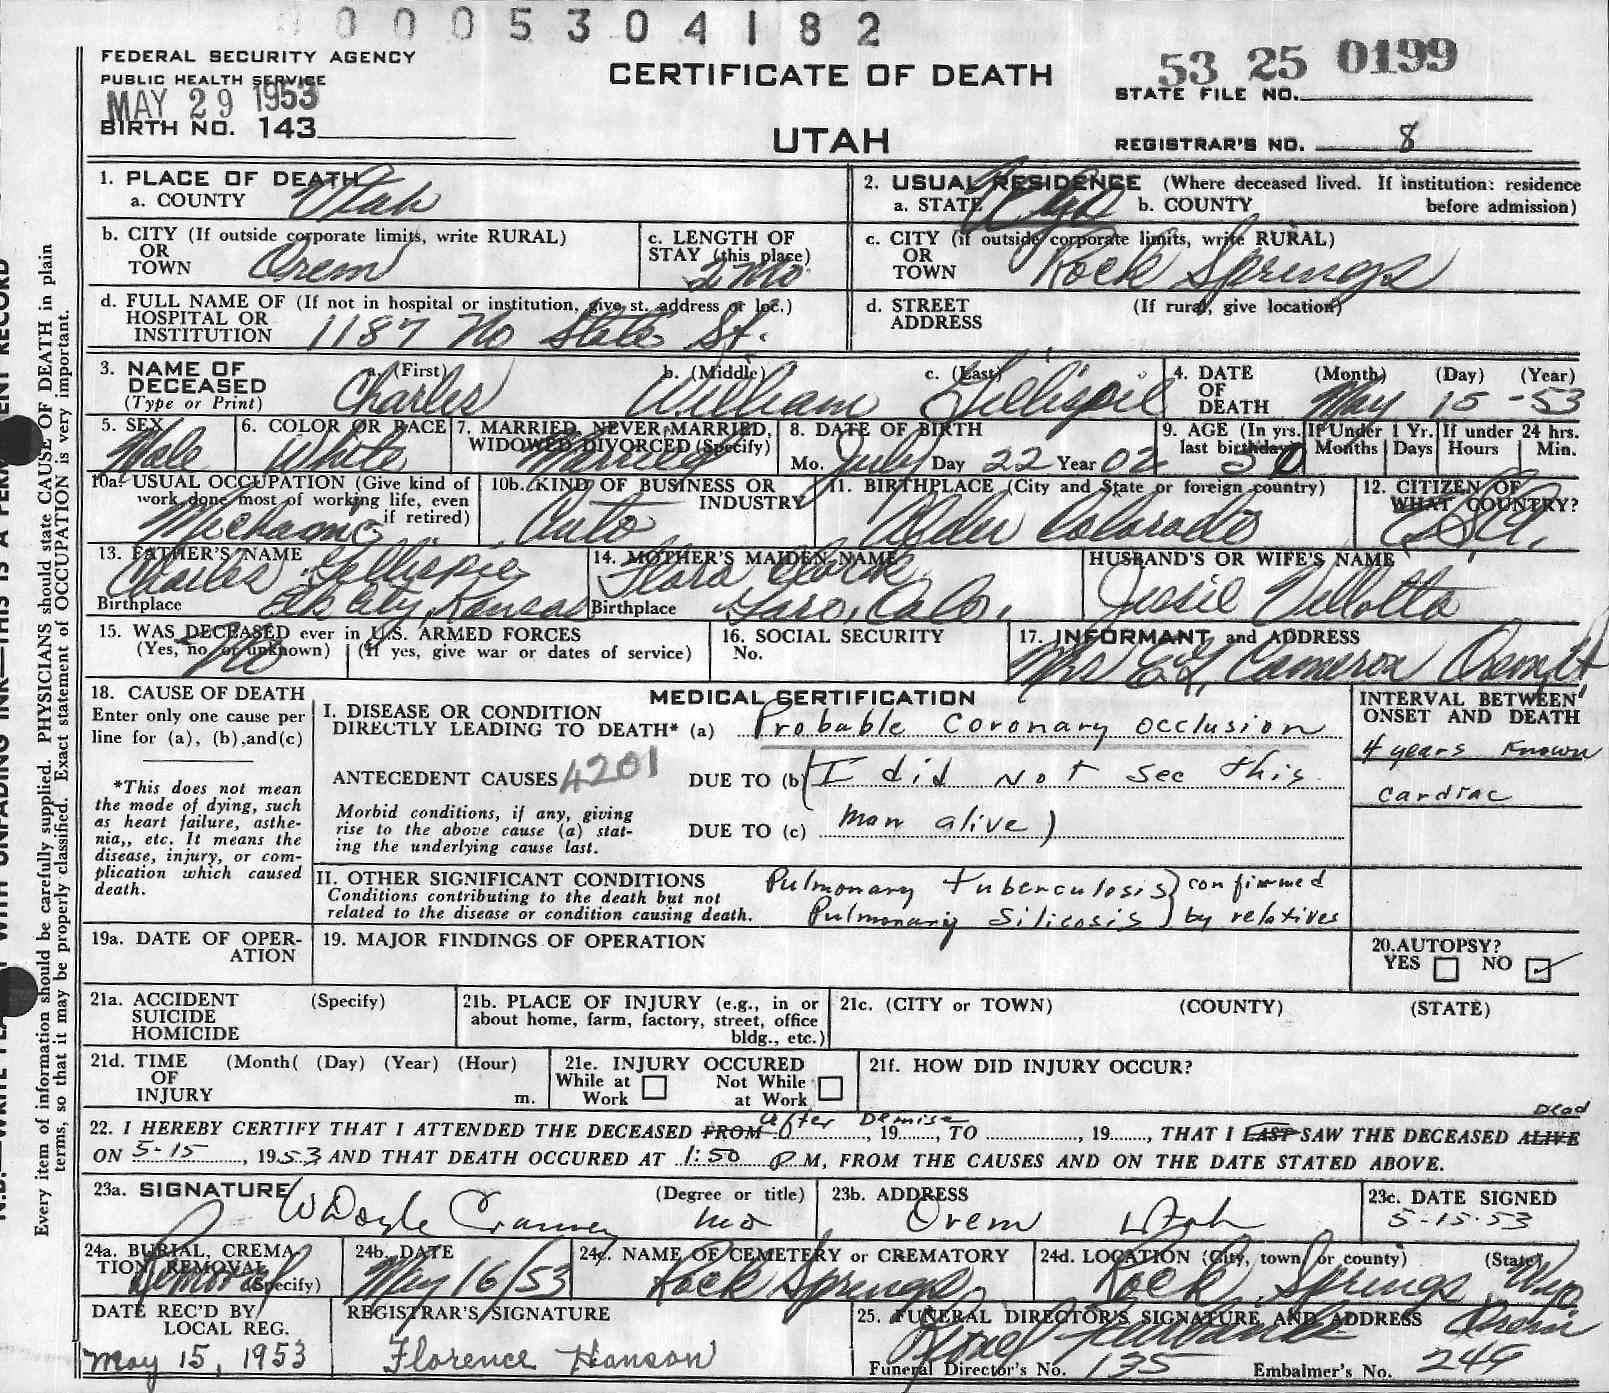 0005304182
FEDERAL SECURITY AGENCY
PUBLIC HEALTH SERVICE
MAY 29 1953
BIRTH NO. 143
CERTIFICATE OF DEATH
UTAH
53 25 0199
STATE FILE NO.
REGISTRAR'S NO. 8
1. PLACE OF DEATH
a. COUNTY Utah
2. USUAL RESIDENCE (Where deceased lived. If institution: residence before admission)
a. STATE Wyo b. COUNTY
b. CITY (If outside corporate limits, write RURAL) OR TOWN Orem
c. LENGTH OF STAY (this place) 2 Mo.
c. CITY (if outside corporate limits, write RURAL) OR TOWN Rock Springs
d. FULL NAME OF (If not in hospital or institution, give st. address or loc.) HOSPITAL OR INSTITUTION 1187 No State St.
d. STREET ADDRESS (If rural, give location)
3. NAME OF DECEASED (Type or Print)
a. (First) Charles b. (Middle) William c. (Last) Gillispie
4. DATE OF DEATH (Month) (Day) (Year) May 15 - 53
5. SEX Male
6. COLOR OR RACE White
7. MARRIED, NEVER MARRIED, WIDOWED, DIVORCED (Specify) Married
8. DATE OF BIRTH Mo. July Day 22 Year 02
9. AGE (In yrs. last birthday) 50 If Under 1 Yr. Months Days If under 24 hrs. Hours Min.
10a. USUAL OCCUPATION (Give kind of work done most of working life, even if retired) Mechanic
10b. KIND OF BUSINESS OR INDUSTRY Auto
11. BIRTHPLACE (City and State or foreign country) Alder Colorado
12. CITIZEN OF WHAT COUNTRY? USA.
13. FATHER'S NAME Charles Gillispie
Birthplace Elk City, Kansas
14. MOTHER'S MAIDEN NAME Flora Clark
Birthplace Colo.
HUSBAND'S OR WIFE'S NAME
Jessie Vellotta
15. WAS DECEASED ever in U.S. ARMED FORCES
(Yes, no or unknown) No (If yes, give war or dates of service)
16. SOCIAL SECURITY No.
17. INFORMANT and ADDRESS
Mrs E L Cameron Orem Ut
18. CAUSE OF DEATH
Enter only one cause per line for (a), (b), and (c)
*This does not mean the mode of dying, such as heart failure, asthenia,, etc. It means the disease, injury, or complication which caused death.
MEDICAL CERTIFICATION
I. DISEASE OR CONDITION DIRECTLY LEADING TO DEATH* (a) Probable Coronary occlusion
ANTECEDENT CAUSES 4201 DUE TO (b) (I did not see this
Morbid conditions, if any, giving rise to the above cause (a) stating the underlying cause last.
DUE TO (c) man alive)
INTERVAL BETWEEN ONSET AND DEATH
4 years known
cardiac
II. OTHER SIGNIFICANT CONDITIONS
Conditions contributing to the death but not related to the disease or condition causing death.
Pulmonary tuberculosis } confirmed
Pulmonary Silicosis } by relatives
19a. DATE OF OPERATION
19. MAJOR FINDINGS OF OPERATION
20. AUTOPSY? YES NO ✓
21a. ACCIDENT SUICIDE HOMICIDE (Specify)
21b. PLACE OF INJURY (e.g., in or about home, farm, factory, street, office bldg., etc.)
21c. (CITY or TOWN) (COUNTY) (STATE)
21d. TIME OF INJURY (Month( (Day) (Year) (Hour) m.
21e. INJURY OCCURED While at Work Not While at Work
21f. HOW DID INJURY OCCUR?
after Demise Dead
22. I HEREBY CERTIFY THAT I ATTENDED THE DECEASED FROM, 19......, TO, 19......, THAT I LAST SAW THE DECEASED ALIVE
ON 5-15, 1953 AND THAT DEATH OCCURED AT 1:50 P M, FROM THE CAUSES AND ON THE DATE STATED ABOVE.
23a. SIGNATURE (Degree or title)
W Doyle Cranney MD
23b. ADDRESS
Orem Utah
23c. DATE SIGNED
5-15-53
24a. BURIAL, CREMATION, REMOVAL (Specify) Removal
24b. DATE May 16/53
24c. NAME OF CEMETERY or CREMATORY Rock Springs
24d. LOCATION (City, town or county) (State) Rock Springs Wyo.
DATE REC'D BY LOCAL REG.
May 15, 1953
REGISTRAR'S SIGNATURE
Florence Hanson
25. FUNERAL DIRECTOR'S SIGNATURE AND ADDRESS Orem
Funeral Director's No. 135 Embalmer's No. 249
Every item of information should be carefully supplied. PHYSICIANS should state CAUSE OF DEATH in plain
terms, so that it may be properly classified. Exact statement of OCCUPATION is very important.